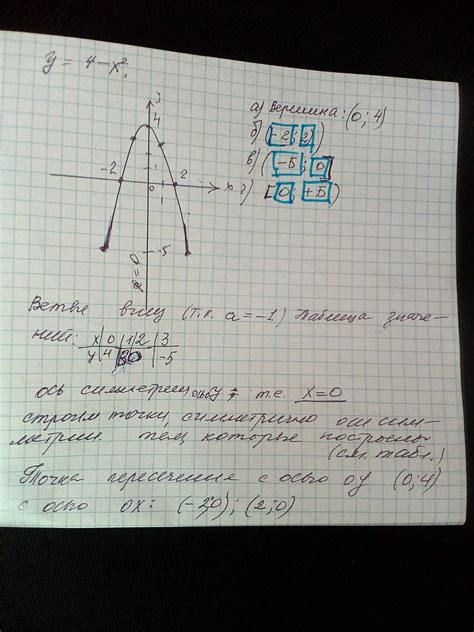 y = 4 - x².
y
4
-2
0
1
2
x
-5
x = 0
а) Вершина: (0; 4)
б) (-2; 2)
в) (-5; 0]
г) [0; +5)
Ветве вниз (т.к. a = -1) Таблица значе-
ний: x | 0 | 1 | 2 | 3
y | 4 | 3 | 0 | -5
ось симметрии т.е. x=0
строим точки, симметрично оси сим-
метрии тем, которые построены
(см. табл.)
Точка пересечения с осью oy (0; 4)
с осью ox: (-2;0); (2;0)